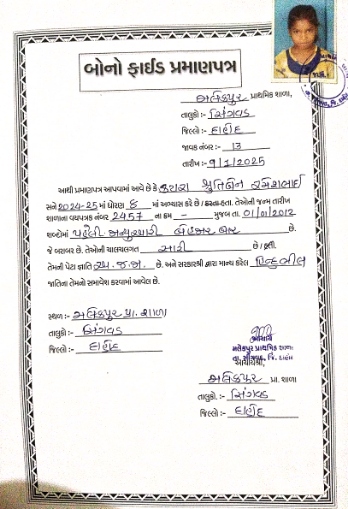 બોનો ફાઈડ પ્રમાણપત્ર
મલેકપુર પ્રાથમિક શાળા,
તાલુકો :- સિંગવડ
જિલ્લો :- દાહોદ
જાવક નંબર :- 13
તારીખ :- 9/1/2025
આથી પ્રમાણપત્ર આપવામાં આવે છે કે શ્રુતિબેન રમેશભાઈ
સને 2024-25 માં ધોરણ 8 માં અભ્યાસ કરે છે / કરતા હતા. તેઓની જન્મ તારીખ
શાળાના વયપત્રક નંબર 2457 ના ક્રમ - મુજબ તા. 01/01/2012
શબ્દોમાં પહેલી જાન્યુઆરી બે હજાર બાર છે.
જે બરાબર છે. તેઓની ચાલચલગત સારી છે / હતી.
તેમની પેટા જ્ઞાતિ છે. અને સરકારશ્રી દ્વારા માન્ય કરેલ હિન્દુ ભીલ
જાતિના તેમનો સમાવેશ કરવામાં આવેલ છે.
સ્થળ :- મલેકપુર પ્રા. શાળા
તાલુકો :- સિંગવડ
જિલ્લો :- દાહોદ
આચાર્ય
મલેકપુર પ્રાથમિક શાળા
તા. સીંગવડ, જિ. દાહોદ
આચાર્યશ્રી,
મલેકપુર પ્રા. શાળા
તાલુકો :- સિંગવડ
જિલ્લો :- દાહોદ